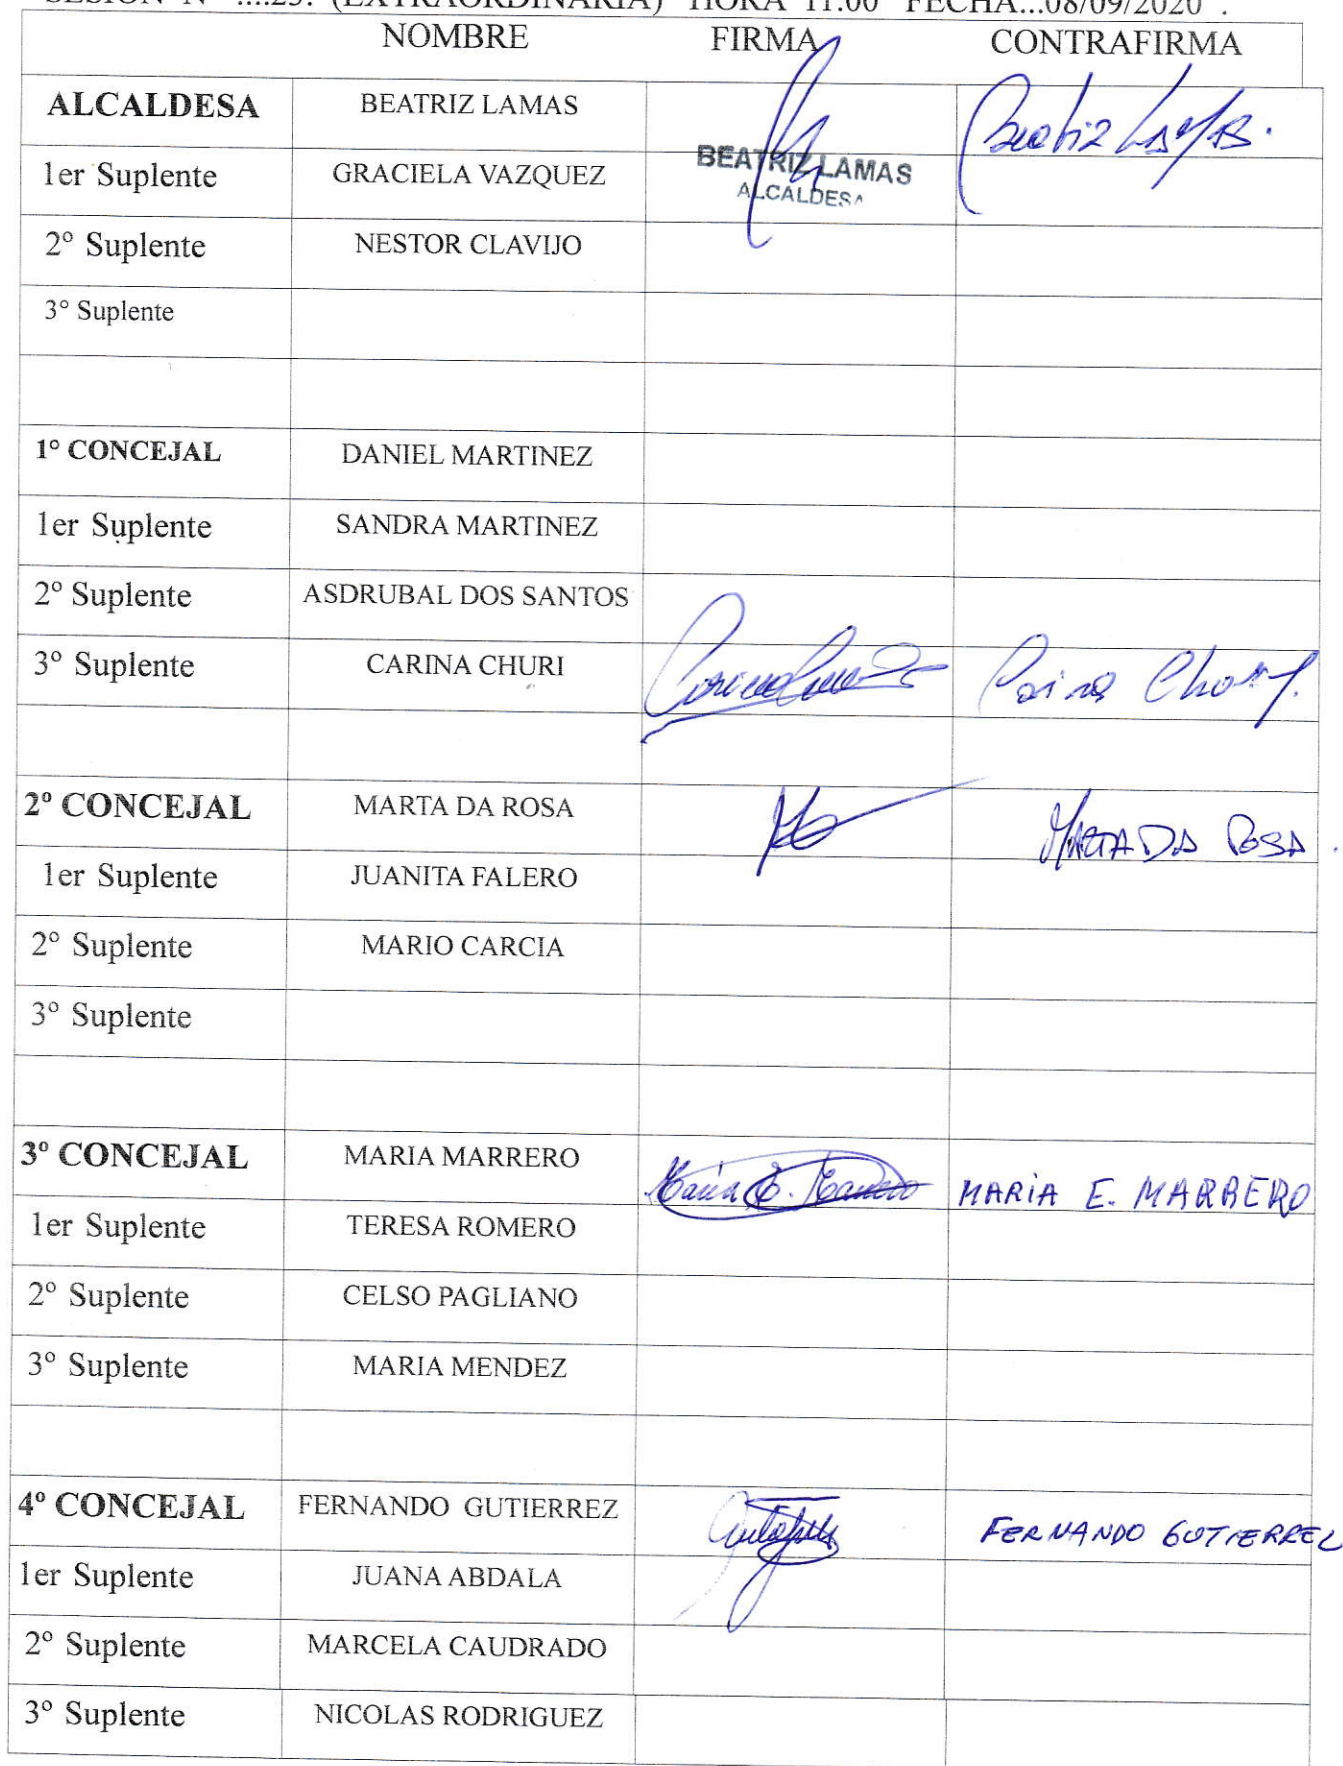 SESION N° ....23. (EXTRAORDINARIA) HORA 11:00 FECHA...08/09/2020 .
NOMBRE FIRMA CONTRAFIRMA
ALCALDESA BEATRIZ LAMAS Beatriz LAMAS.
BEATRIZ LAMAS
ALCALDESA
1er Suplente GRACIELA VAZQUEZ
2° Suplente NESTOR CLAVIJO
3° Suplente
1° CONCEJAL DANIEL MARTINEZ
1er Suplente SANDRA MARTINEZ
2° Suplente ASDRUBAL DOS SANTOS
3° Suplente CARINA CHURI Carina
2º CONCEJAL MARTA DA ROSA MARTA DA ROSA.
1er Suplente JUANITA FALERO
2° Suplente MARIO CARCIA
3° Suplente
3º CONCEJAL MARIA MARRERO Maria E. Marrero MARIA E. MARRERO
1er Suplente TERESA ROMERO
2° Suplente CELSO PAGLIANO
3° Suplente MARIA MENDEZ
4º CONCEJAL FERNANDO GUTIERREZ FERNANDO GUTIERREZ
1er Suplente JUANA ABDALA
2° Suplente MARCELA CAUDRADO
3° Suplente NICOLAS RODRIGUEZ